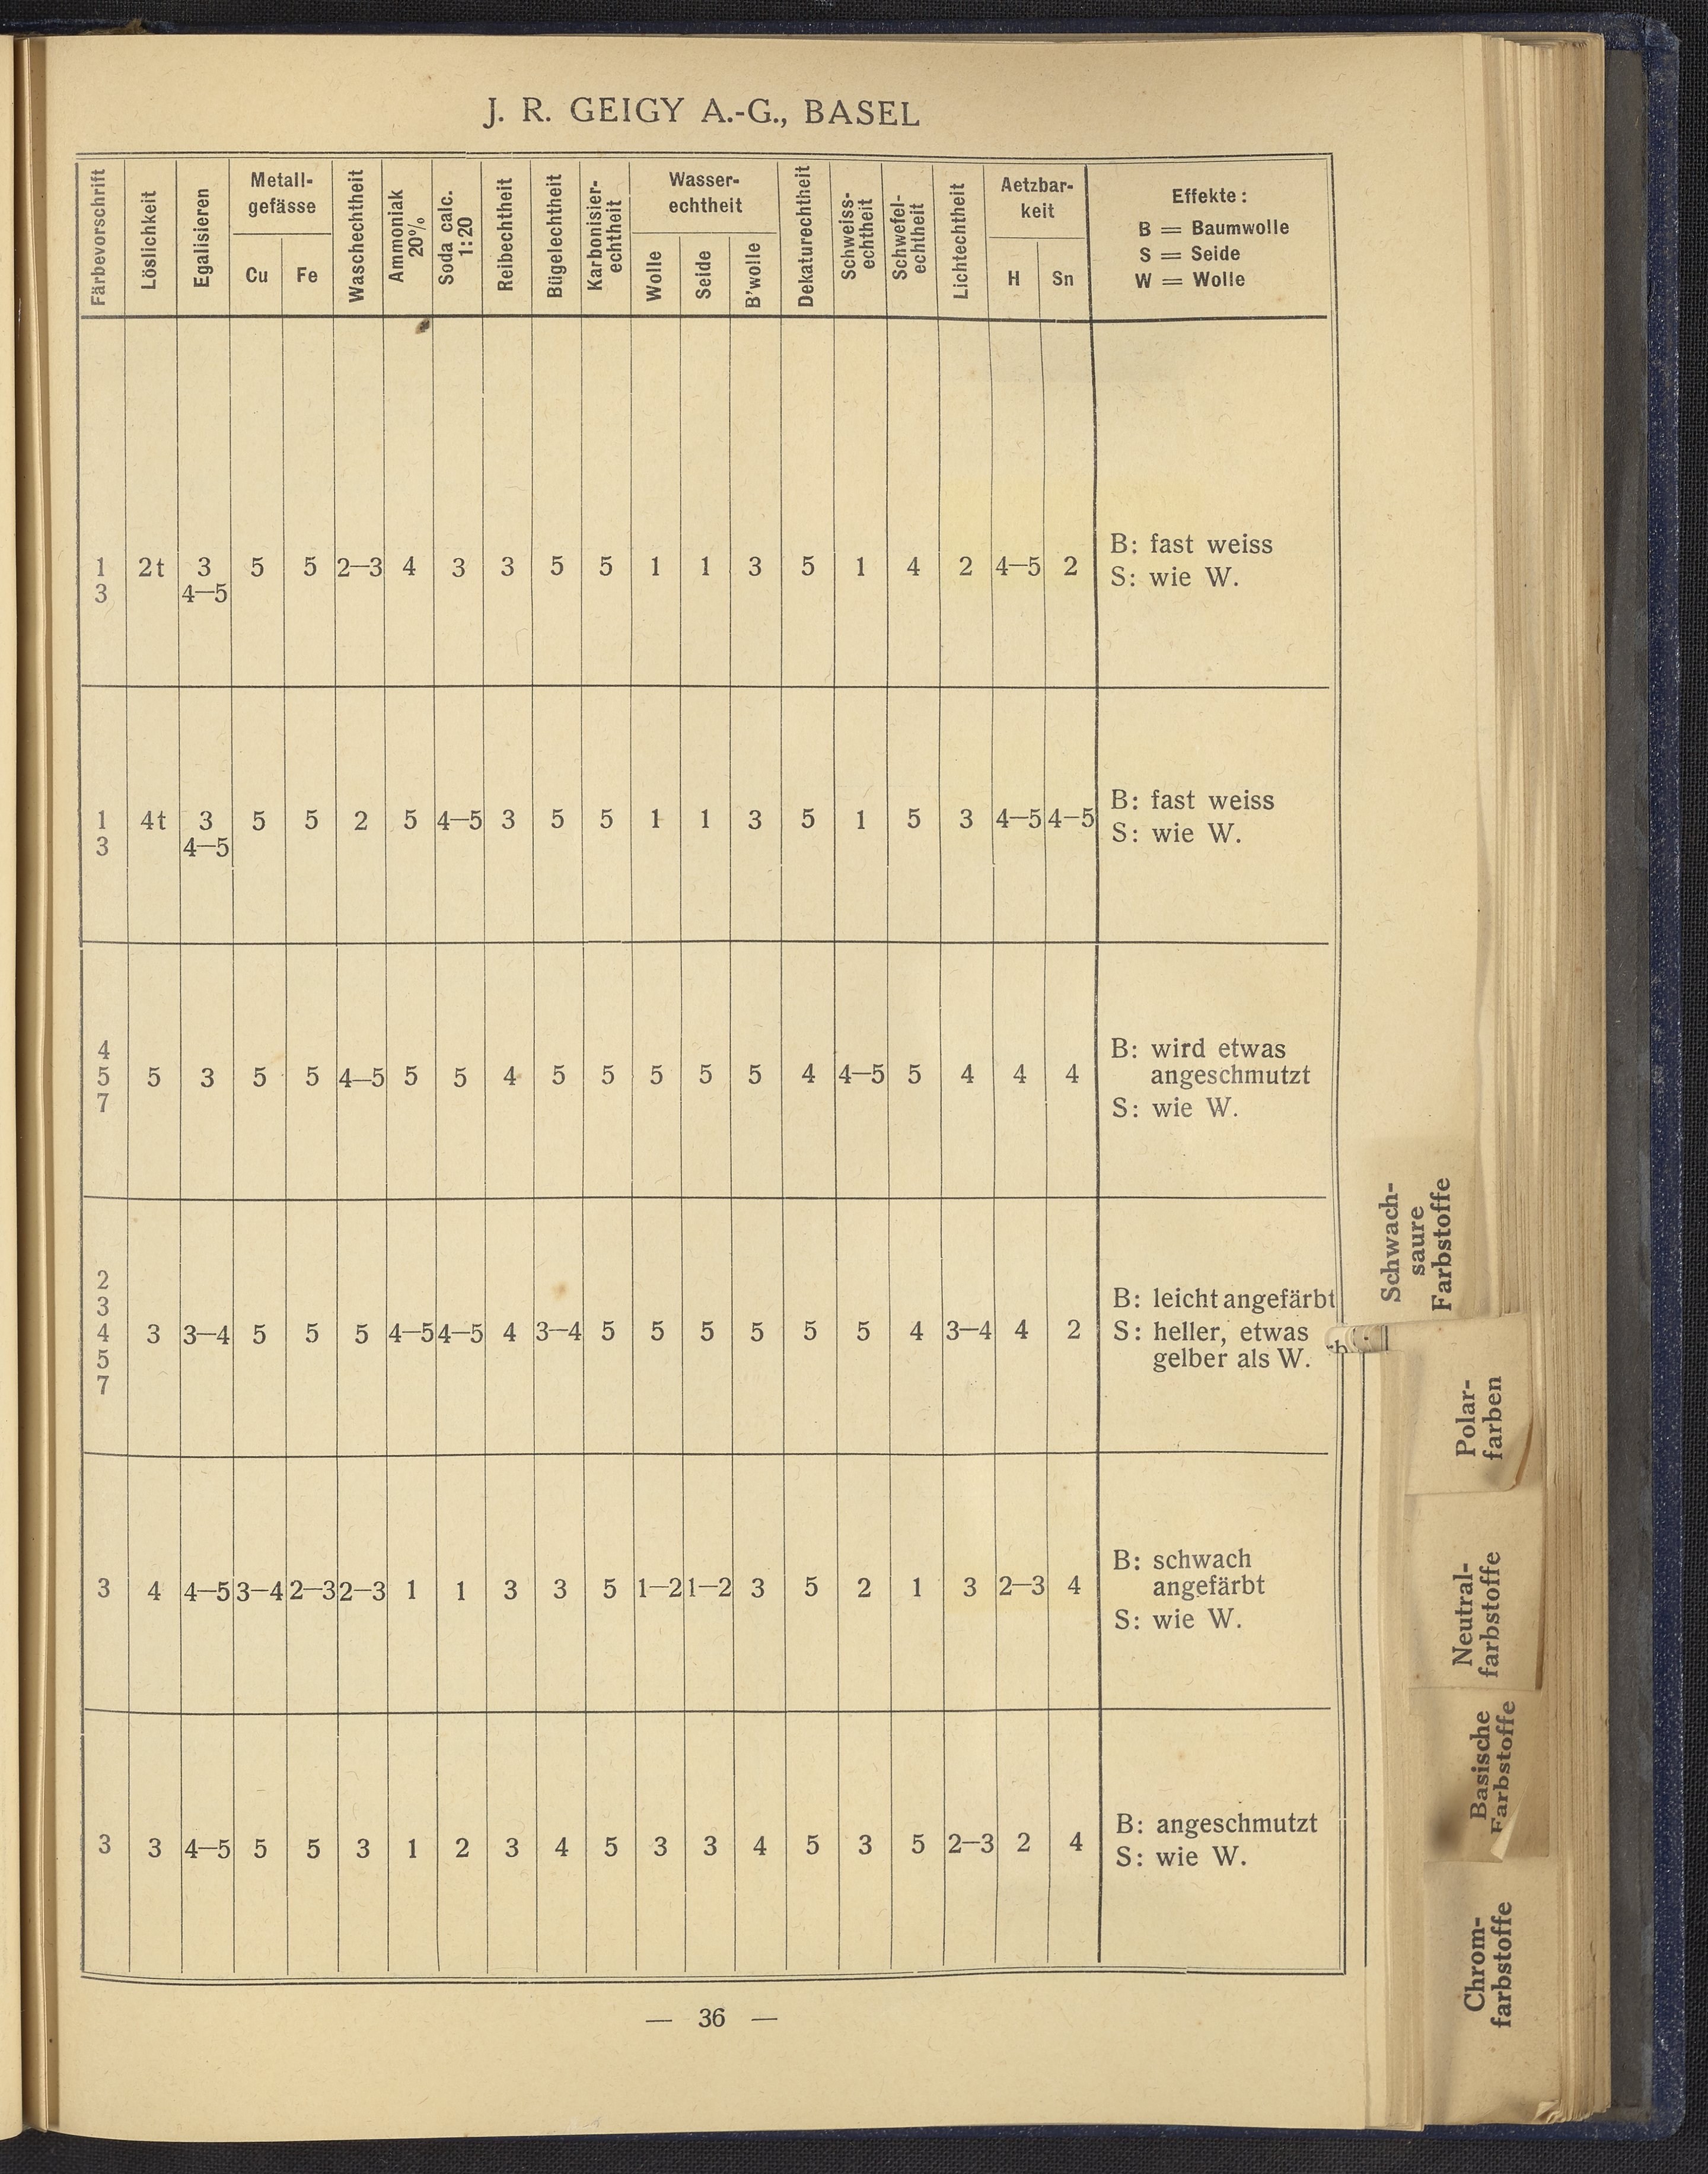 J. R. GEIGY A.-G., BASEL
Färbevorschrift
Löslichkeit
Egalisieren
Metall-
gefässe
Cu
Fe
Waschechtheit
Ammoniak
20%
Soda calc.
1:20
Reibechtheit
Bügelechtheit
Karbonisier-
echtheit
Wasser-
echtheit
Wolle
Seide
B'wolle
Dekaturechtheit
Schweiss-
echtheit
Schwefel-
echtheit
Lichtechtheit
Aetzbar-
keit
H
Sn
Effekte:
B = Baumwolle
S = Seide
W = Wolle
1 2t 3 5 5 2–3 4 3 3 5 5 1 1 3 5 1 4 2 4–5 2
3 4–5
B: fast weiss
S: wie W.
1 4t 3 5 5 2 5 4–5 3 5 5 1 1 3 5 1 5 3 4–5 4–5
3 4–5
B: fast weiss
S: wie W.
4
5 5 3 5 5 4–5 5 5 4 5 5 5 5 5 4 4–5 5 4 4 4
7
B: wird etwas
angeschmutzt
S: wie W.
2
3
4 3 3–4 5 5 5 4–5 4–5 4 3–4 5 5 5 5 5 5 4 3–4 4 2
5
7
B: leicht angefärbt
S: heller, etwas
gelber als W.
3 4 4–5 3–4 2–3 2–3 1 1 3 3 5 1–2 1–2 3 5 2 1 3 2–3 4
B: schwach
angefärbt
S: wie W.
3 3 4–5 5 5 3 1 2 3 4 5 3 3 4 5 3 5 2–3 2 4
B: angeschmutzt
S: wie W.
— 36 —
Schwach-
saure
Farbstoffe
Polar-
farben
Neutral-
farbstoffe
Basische
Farbstoffe
Chrom-
farbstoffe